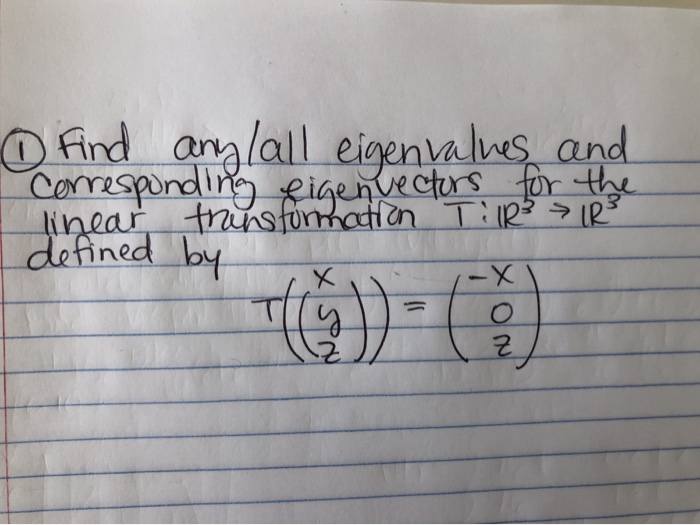 ① Find any/all eigenvalues and
corresponding eigenvectors for the
linear transformation T: ℝ³ → ℝ³
defined by
T((x y z)) = (-x 0 z)